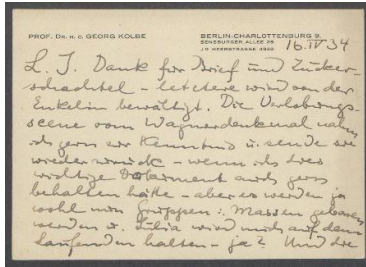 PROF. DR. H. C. GEORG KOLBE
BERLIN-CHARLOTTENBURG 9.
SENSBURGER ALLEE 26
J 9 HEERSTRASSE
16. IV 34
L. J. Dank für Brief und Zucker-
schachtel – letztere wird von der
Enkelin bewältigt. Die Verlobungs-
scene vom Wagnerdenkmal nahm
ich gern zur Kenntnis u. sende sie
wieder zurück – wenn ich dies
wichtige Dokument auch gern
behalten hätte – aber es werden ja
wohl nun Gruppen i. Massen geboren
werden u. Lilia wird mich auf dem
Laufenden halten – ja? Und die